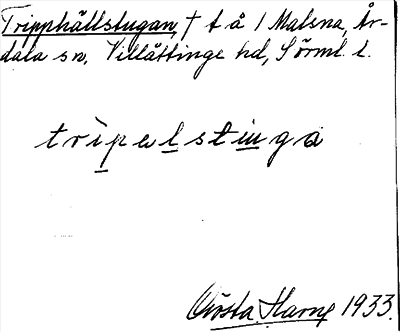 Tripphällstugan, † t å / Malsna, År-
dala sn, Villåttinge hd, Sörml. l.
tripalstinga
Gösta Harne 1933.